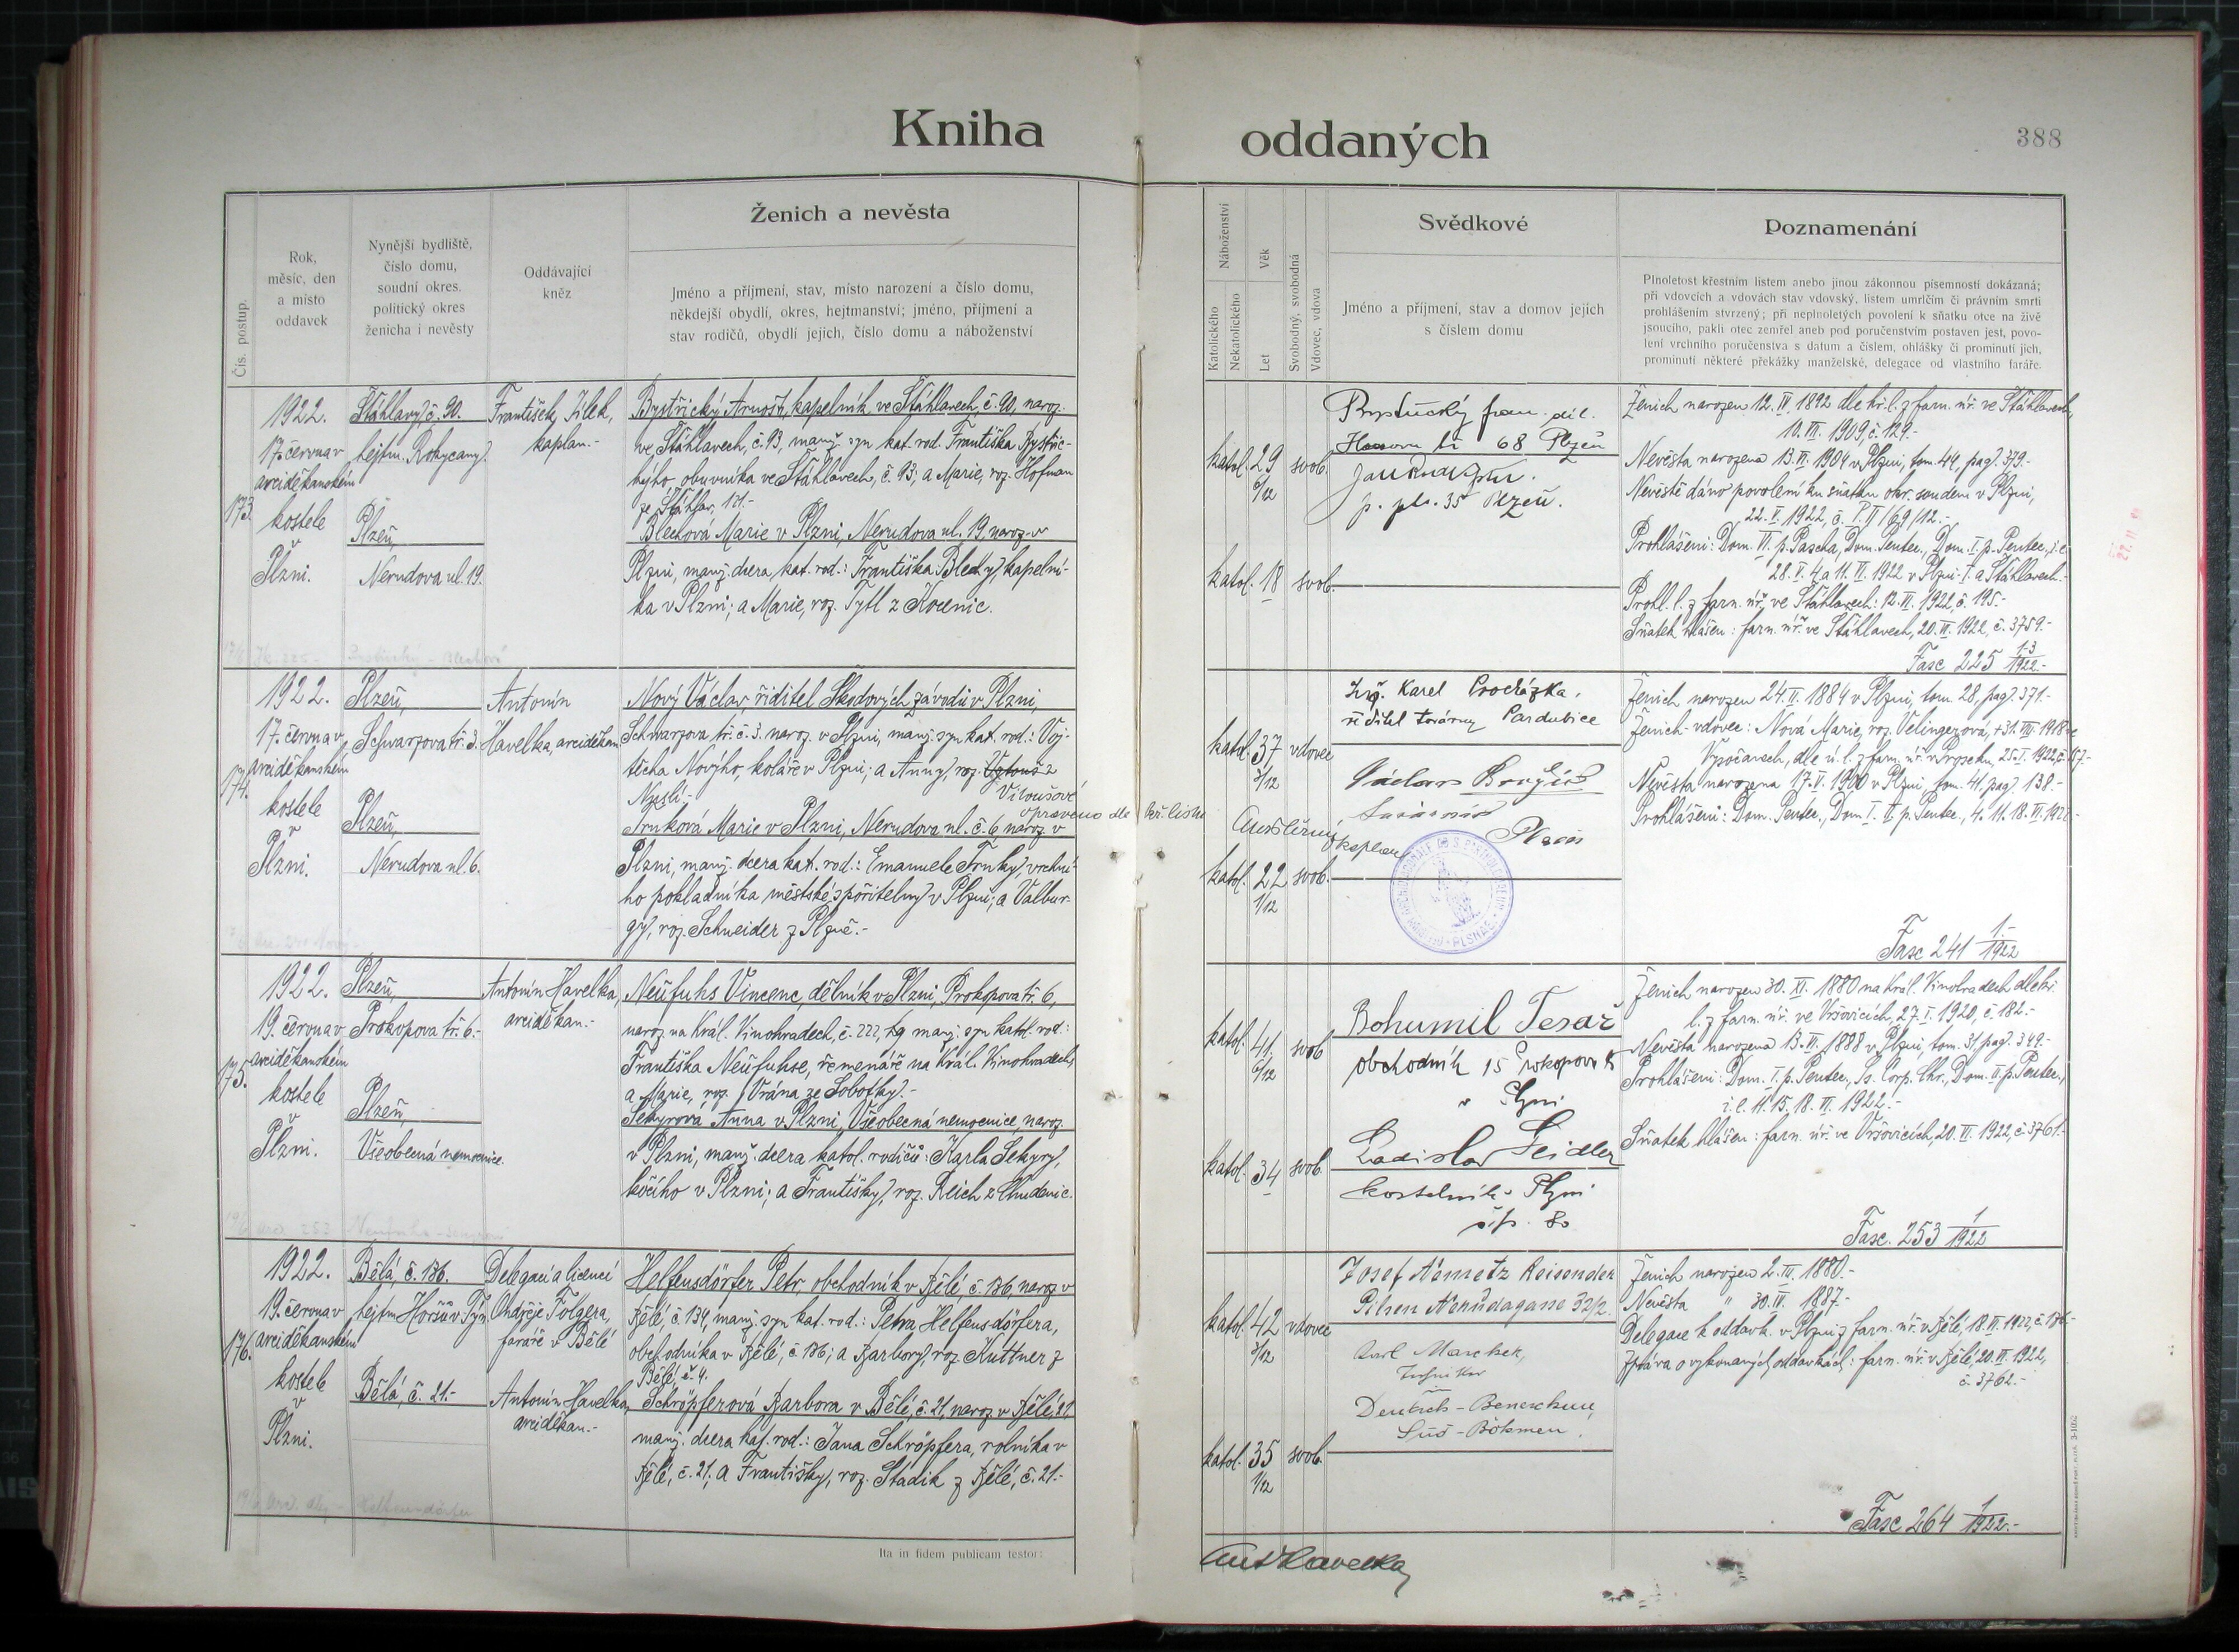 Kniha oddaných
388
Čís. postup.
Rok,
měsíc, den
a místo
oddavek
Nynější bydliště,
číslo domu,
soudní okres.
politický okres
ženicha i nevěsty
Oddávající
kněz
Ženich a nevěsta
Jméno a příjmení, stav, místo narození a číslo domu,
někdejší obydlí, okres, hejtmanství; jméno, příjmení a
stav rodičů, obydlí jejich, číslo domu a náboženství
Náboženství
Katolického
Nekatolického
Věk
Let
Svobodný, svobodná
Vdovec, vdova
Svědkové
Jméno a příjmení, stav a domov jejich
s číslem domu
Poznamenání
Plnoletost křestním listem anebo jinou zákonnou písemností dokázaná;
při vdovcích a vdovách stav vdovský, listem umrlčím či právním smrti
prohlášením stvrzený; při neplnoletých povolení k sňatku otce na živě
jsoucího, pakli otec zemřel aneb pod poručenstvím postaven jest, povo-
lení vrchního poručenstva s datum a číslem, ohlášky či prominutí jich,
prominutí některé překážky manželské, delegace od vlastního faráře.
173.
1922.
17. června v
arciděkanském
kostele
v
Plzni.
Šťáhlavy, č. 90.
hejtm. Rokycany.
Plzeň,
Nerudova ul. 19.
František Jílek,
kaplan.-
Bystřický Arnošt, kapelník ve Šťáhlavech, č. 90, naroz.
ve Šťáhlavech, č. 93, manž. syn kat. rod. Františka Bystřic-
kýho, obuvníka ve Šťáhlavech, č. 93; a Marie, roz. Hofman
ze Šťáhlav, 131.-
Blechová Marie v Plzni, Nerudova ul. 19, naroz. v
Plzni, manž. dcera, kat. rod.: Františka Blechy, kapelní-
ka v Plzni; a Marie, roz. Tytl z Kocenic.
katol. 29 6/12 svob.
katol. 18 svob.
68 Plzeň
35 Plzeň.
Ženich narozen 12. IV. 1892 dle kř. l. z farn. úř. ve Šťáhlavech,
10. VII. 1909, č. 129.-
Nevěsta narozena 13. VI. 1904 v Plzni, tom. 44, pag. 379.-
Nevěstě dáno povolení ku sňatku okr. soudem v Plzni,
22. V. 1922, č.
Prohlášeni: Dom. VI. p. Pascha, Dom. Pentec., Dom. I. p. Pentec., i. e.
28. V. 4 a 11. VI. 1922 v Plzni-I. a Šťáhlavech.-
Prohl. l. z farn. úř. ve Šťáhlavech: 12. VI. 1922, č. 195.-
Sňatek hlášen: farn. úř. ve Šťáhlavech, 20. VI. 1922, č. 3759.-
Fasc 225 1-3/1922.-
174.
1922.
17. června v
arciděkanském
kostele
v
Plzni.
Plzeň,
Schwarzova tř. 3.
Plzeň,
Nerudova ul. 6.
Antonín
Havelka, arciděkan
Nový Václav, řiditel Škodových závodů v Plzni,
Schwarzova tř. č. 3. naroz. v Plzni, manž. syn kat. rod.: Voj-
těcha Nového, koláře v Plzni; a Anny, roz.
Vitoušové
opraveno dle kř. listu
Trnková Marie v Plzni, Nerudova ul. č. 6 naroz. v
Plzni, manž. dcera kat. rod.: Emanuele Trnky, vrchní-
ho pokladníka městské spořitelny v Plzni; a Valbur-
gy, roz. Schneider z Plzně.-
katol. 37 vdovec
katol. 22 1/12 svob.
kaplan
Ing. Karel Procházka,
ředitel továrny Pardubice
Václav
Plzeň
Ženich narozen 24. II. 1884 v Plzni, tom. 28, pag. 371.-
Ženich-vdovec: Nová Marie, roz. Velingerová, +31. VIII. 1918 ve
Vysočanech, dle ú. l. z farn. úř. v Proseku, 25. I. 1922, č. 157.-
Nevěsta narozena 17. V. 1900 v Plzni, tom. 41. pag. 138.-
Prohlášeni: Dom. Pentec., Dom. I. II. p. Pentec., 4. 11. 18. VI. 1922.-
Fasc 241 1.-/1922
175.
1922.
19. června v
arciděkanském
kostele
v
Plzni.
Plzeň,
Prokopova tř. 6.-
Plzeň,
Všeobecná nemocnice.
Antonín Havelka,
arciděkan.-
Neüfuhs Vincenc, dělník v Plzni, Prokopova tř. 6,
naroz. na Král. Vinohradech, č. 222, manž. syn katol. rod.:
Františka Neüfuhse, řemenáře na Král. Vinohradech,
a Marie, roz. Vrána ze Sobotky.-
Sekyrová Anna v Plzni, Všeobecná nemocnice, naroz.
v Plzni, manž. dcera katol. rodičů: Karla Sekyry,
kočího v Plzni; a Františky, roz. Reich z Chudenic.
katol. 41 6/12 svob
katol. 34 svob.
Bohumil Tesař
obchodník 15 Prokopova tř
v Plzni
Ladislav Seidler
kostelník Plzni
čp. 80
Ženich narozen 30. XI. 1880 na Král. Vinohradech dle kř.
l. z farn. úř. ve Vršovicích, 27. I. 1920, č. 182.-
Nevěsta narozena 13. VI. 1888 v Plzni, tom. 31 pag. 349.-
Prohlášeni: Dom. I. p. Pentec., Ss. Corp. Chr., Dom. II. p. Pentec.,
i. e. 11. 15. 18. VI. 1922.-
Sňatek hlášen: farn. úř. ve Vršovicích, 20. VI. 1922, č. 3761.-
Fasc. 253 1/1922
176.
1922.
19. června v
arciděkanském
kostele
v
Plzni.
Bělá, č. 186.
hejtm Horšův Týn
Bělá, č. 21.-
Delegací a licencí
Ondřeje Folgera,
faráře v Bělé
Antonín Havelka,
arciděkan.-
Helfensdörfer Petr, obchodník v Bělé, č. 186, naroz v
Bělé, č. 134, manž. syn kat. rod.: Petra Helfensdörfera,
obchodníka v Bělé, č 186; a Barbory, roz Kuttner z
Bělé, č. 4.
Schröpferová Barbora v Bělé, č. 21, naroz v Bělé, 21
manž. dcera kat. rod.: Jana Schröpfera, rolníka v
Bělé, č. 21; a Františky, roz. Stadik z Bělé, č. 21.-
katol. 42 vdovec
katol. 35 1/12 svob.
Josef Nemetz Reisender
Pilsen Nerudagasse 32/2.
Karl
Deutsch-
Süd-Böhmen.
Ženich narozen 2. IV. 1880.-
Nevěsta " 30. IV. 1887.-
Delegace k oddavk. v Plzni z farn. úř. v Bělé, 18. VI. 1922, č. 186.-
Zpráva o vykonaných oddavkách: farn. úř. v Bělé, 20. VI. 1922,
č. 3762.-
Fasc 264 1/1922.-
Ita in fidem publicam testor:
Ant Havelka